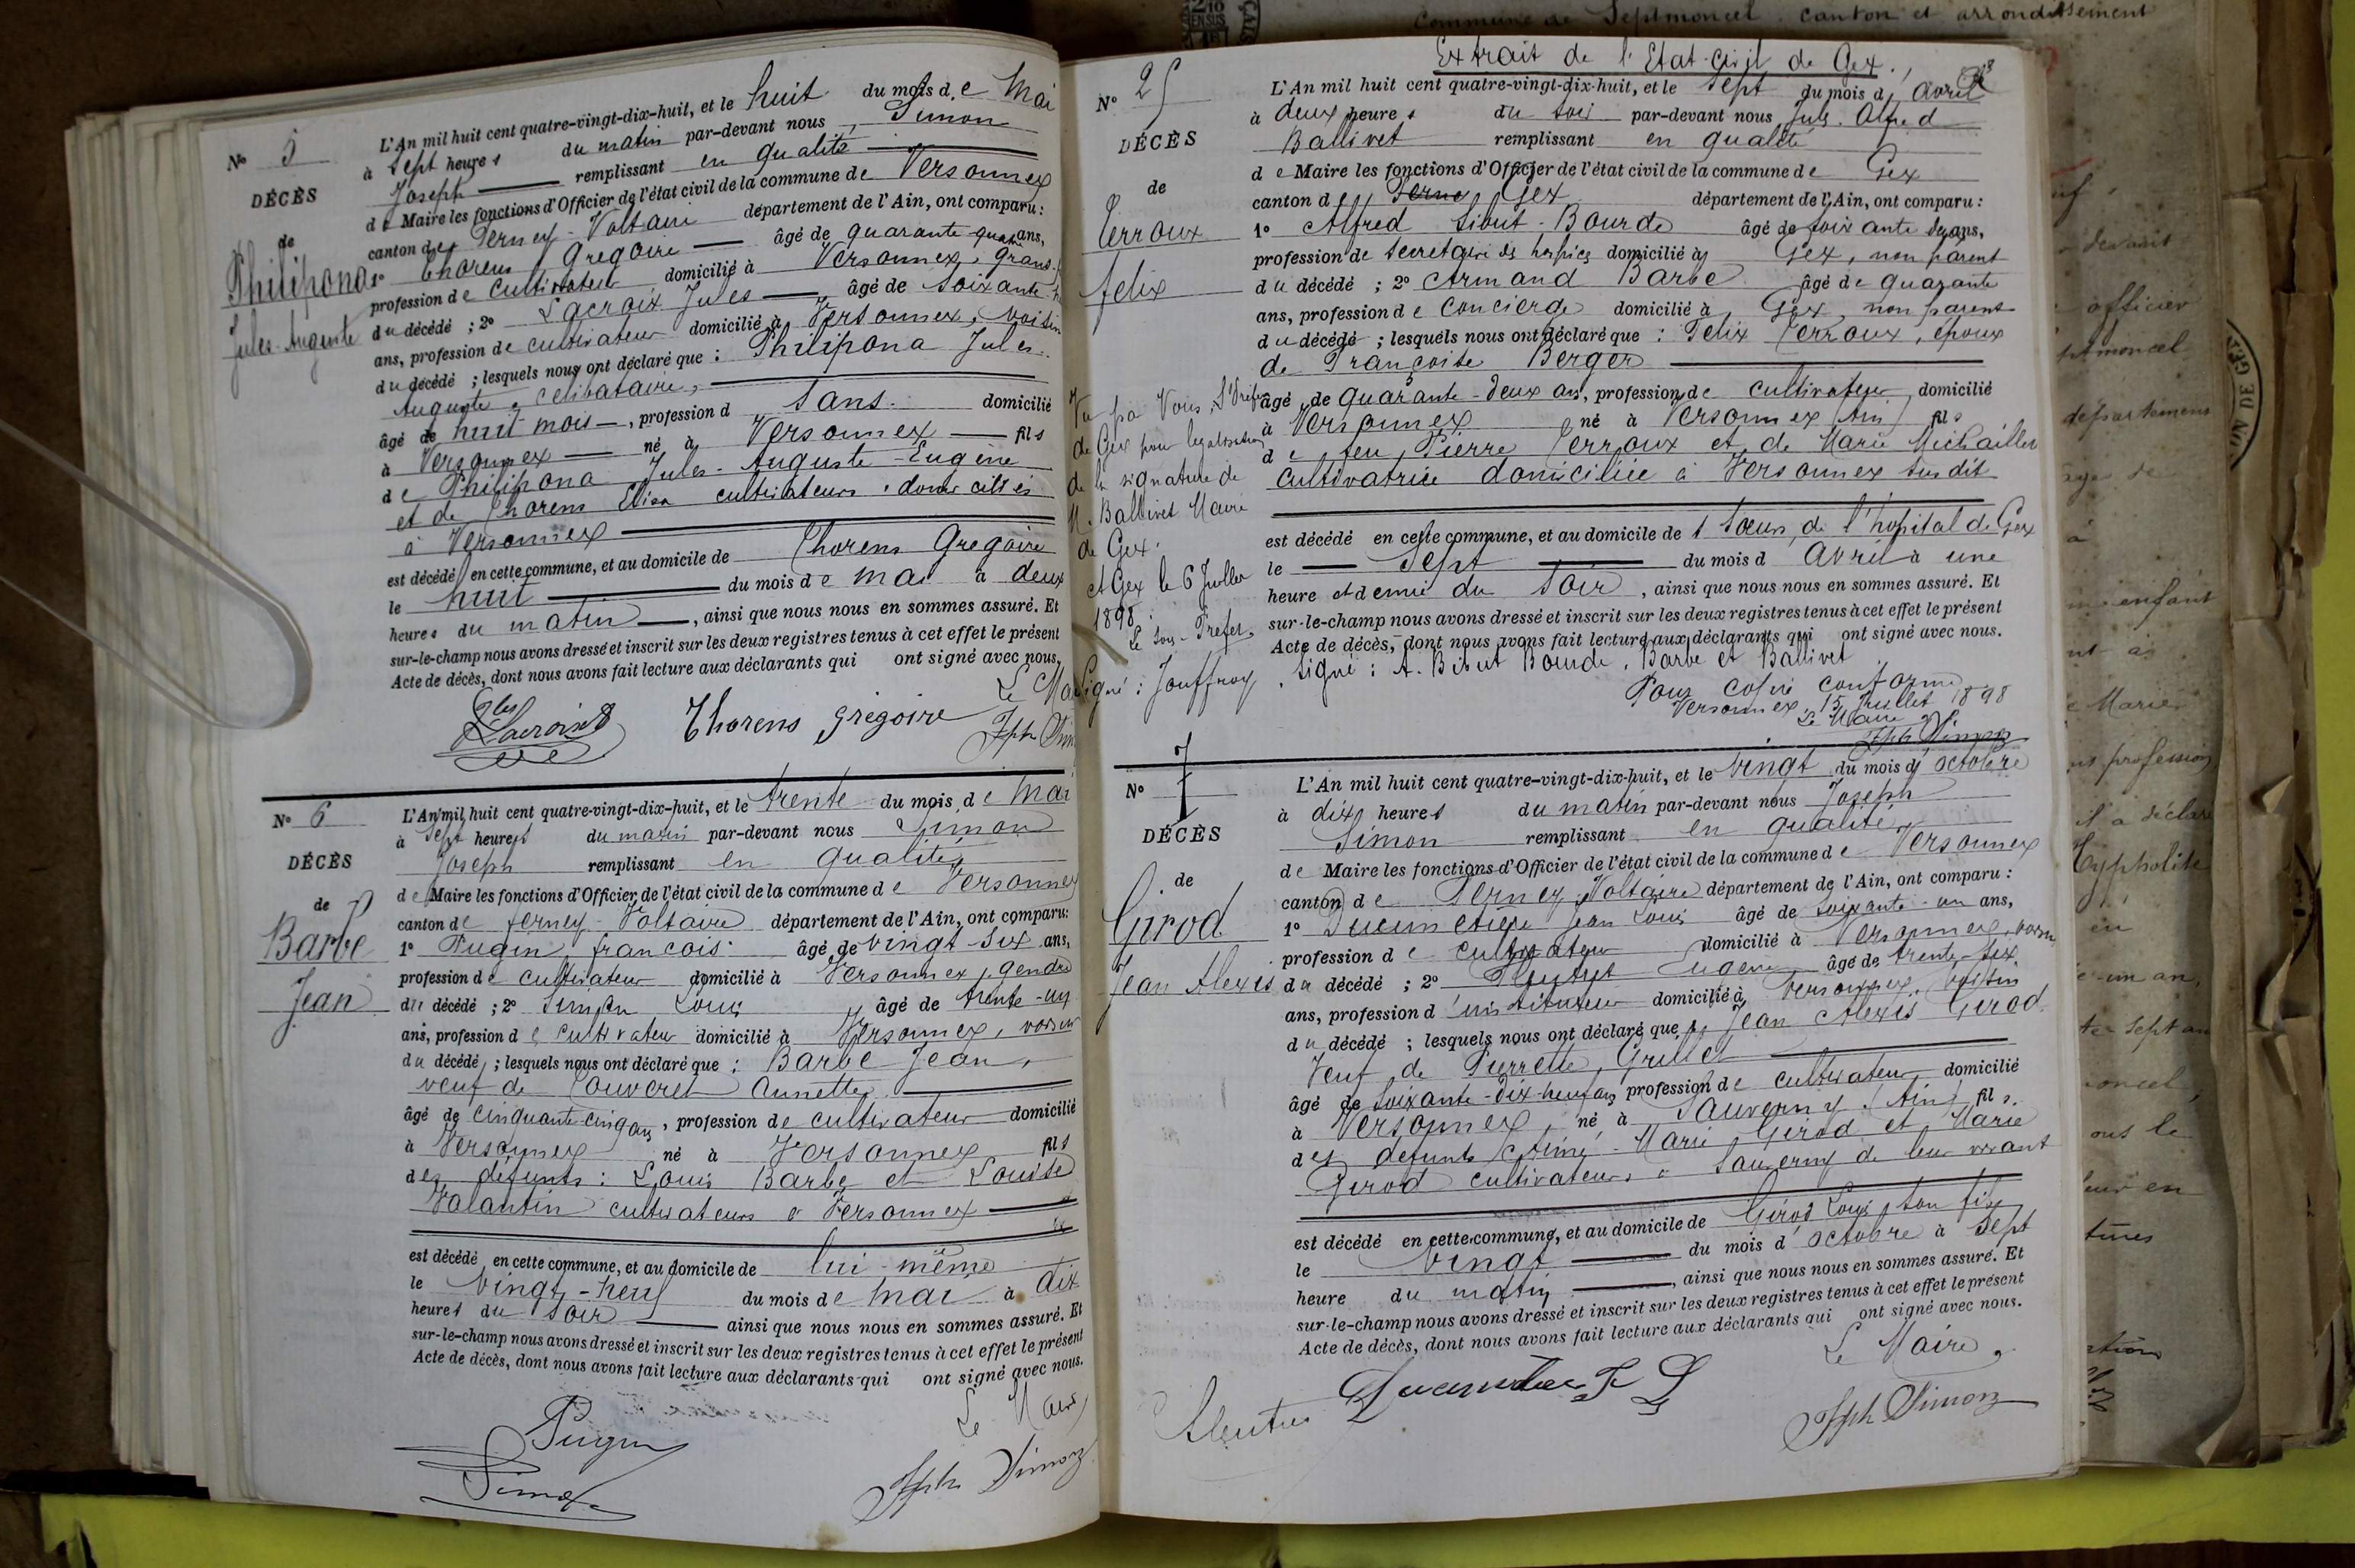 Commune de Septmoncel canton et arrondissement
N° 5
DÉCÈS
de
Philipona
Jules-Auguste
L'An mil huit cent quatre-vingt-dix-huit, et le huit du mois de Mai
à Sept heures du matin par-devant nous Simon
Joseph remplissant en qualité
de Maire les fonctions d'Officier de l'état civil de la commune de Versonnex
canton de Ferney-Voltaire département de l'Ain, ont comparu:
1° Thorens Grégoire âgé de quarante-quatre ans,
profession de Cultivateur domicilié à Versonnex, grand
du décédé ; 2° Lacroix Jules âgé de soixante
ans, profession de cultivateur domicilié à Versonnex, voisin
du décédé ; lesquels nous ont déclaré que : Philipona Jules
Auguste célibataire,
âgé de huit mois, profession d sans. domicilié
à Versonnex né à Versonnex fils
de Philipona Jules-Auguste-Eugène
et de Thorens Elisa cultivateurs domiciliés
à Versonnex
est décédé en cette commune, et au domicile de Thorens Grégoire
le huit du mois de mai à deux
heures du matin, ainsi que nous nous en sommes assuré. Et
sur-le-champ nous avons dressé et inscrit sur les deux registres tenus à cet effet le présent
Acte de décès, dont nous avons fait lecture aux déclarants qui ont signé avec nous.
Le Ma
Lacroix Thorens Grégoire Jph Sim
N° 6
DÉCÈS
de
Barbe
Jean
L'An mil huit cent quatre-vingt-dix-huit, et le trente du mois de Mai
à Sept heures du matin par-devant nous Simon
Joseph remplissant en qualité
de Maire les fonctions d'Officier de l'état civil de la commune de Versonnex
canton de ferney-Voltaire département de l'Ain, ont comparu:
1° Pugin françois âgé de vingt-six ans,
profession de cultivateur domicilié à Versonnex, gendre
du décédé ; 2° Simon Louis âgé de trente-un
ans, profession de cultivateur domicilié à Versonnex, voisin
du décédé ; lesquels nous ont déclaré que : Barbe Jean,
veuf de Couveret Annette
âgé de cinquante-cinq ans, profession de cultivateur domicilié
à Versonnex né à Versonnex fils
des défunts : Louis Barbe et Louise
Valantin cultivateurs à Versonnex
est décédé en cette commune, et au domicile de lui-même
le vingt-neuf du mois de mai à dix
heures du soir ainsi que nous nous en sommes assuré. Et
sur-le-champ nous avons dressé et inscrit sur les deux registres tenus à cet effet le présent
Acte de décès, dont nous avons fait lecture aux déclarants qui ont signé avec nous.
Le Maire
Pugin
Simon
Jph Simon
Extrait de l'Etat-Civil de Gex.
N° 25
DÉCÈS
de
Perroux
felix
L'An mil huit cent quatre-vingt-dix-huit, et le sept du mois d'avril
à deux heures du soir par-devant nous Jules Alfred
Ballivet remplissant en qualité
de Maire les fonctions d'Officier de l'état civil de la commune de Gex
canton de Gex département de l'Ain, ont comparu :
1° Alfred Bourde âgé de soixante ans,
profession de secrétaire des hospices domicilié à Gex, non parent
du décédé ; 2° Armand Barbe âgé de quarante
ans, profession de concierge domicilié à Gex, non parent
du décédé ; lesquels nous ont déclaré que : Felix Perroux, époux
de Françoise Berger
âgé de quarante-deux ans, profession de cultivateur domicilié
à Versonnex né à Versonnex (Ain) fils
de feu Pierre Perroux et de Marie
cultivatrice domiciliée à Versonnex susdit
est décédé en cette commune, et au domicile de l'hopital de Gex
le Sept du mois d Avril à une
heure et demie du soir, ainsi que nous nous en sommes assuré. Et
sur-le-champ nous avons dressé et inscrit sur les deux registres tenus à cet effet le présent
Acte de décès, dont nous avons fait lecture aux déclarants qui ont signé avec nous.
Signé : A. Bourde, Barbe et Ballivet
Pour copie conforme
Versonnex, 15 Juillet 1898
Le Maire
Jph Simon
Vu par Nous,
de Gex pour legalisation
de la signature de
M. Ballivet Maire
de Gex.
Gex le 6 Juillet
1898
Le Sous-Préfet.
Signé : Jouffroy
N° 7
DÉCÈS
de
Girod
Jean Alexis
L'An mil huit cent quatre-vingt-dix-huit, et le vingt du mois d'octobre
à dix heures du matin par-devant nous Joseph
Simon remplissant en qualité
de Maire les fonctions d'Officier de l'état civil de la commune de Versonnex
canton de Ferney-Voltaire département de l'Ain, ont comparu :
1° Jean Louis âgé de soixante-un ans,
profession de cultivateur domicilié à Versonnex, voisin
du décédé ; 2° Eugène âgé de trente-six
ans, profession d'instituteur domicilié à Versonnex, voisin
du décédé ; lesquels nous ont déclaré que : Jean Alexis Girod
Veuf de Pierrette Grillet
âgé de soixante-dix-neuf ans, profession de cultivateur domicilié
à Versonnex, né à Sauverny (Ain) fils
des défunts Aimé-Marie Girod et Marie
Girod cultivateurs à Sauverny de leur vivant
est décédé en cette commune, et au domicile de Girod Louis son fils
le vingt du mois d'octobre à sept
heure du matin, ainsi que nous nous en sommes assuré. Et
sur-le-champ nous avons dressé et inscrit sur les deux registres tenus à cet effet le présent
Acte de décès, dont nous avons fait lecture aux déclarants qui ont signé avec nous.
Le Maire,
Jph Simon
devant
officier
département
enfant
Marie
profession
il a déclaré
Hyppolite
un an,
sept an